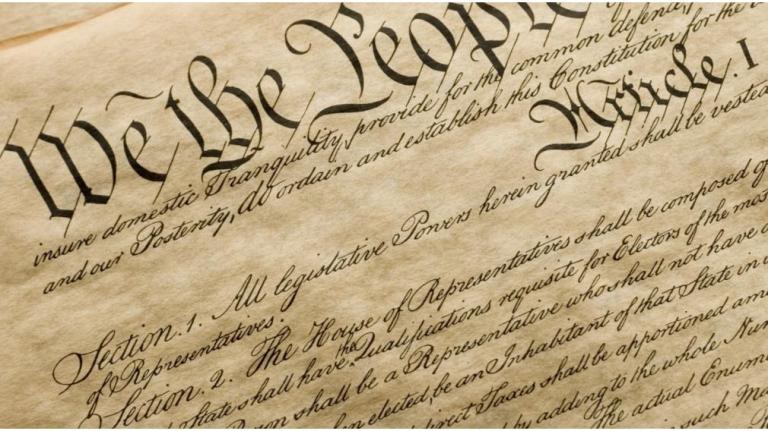 We the People
insure domestic Tranquility, provide for the common defence,
and our Posterity, do ordain and establish this Constitution for the
Article. I
Section. 1. All legislative Powers herein granted shall be vested
of Representatives.
Section. 2. The House of Representatives shall be composed of
State shall have the Qualifications requisite for Electors of the most
shall be a Representative who shall not have
elected, be an Inhabitant of that State in
Taxes shall be apportioned
by adding to the whole
The actual
such